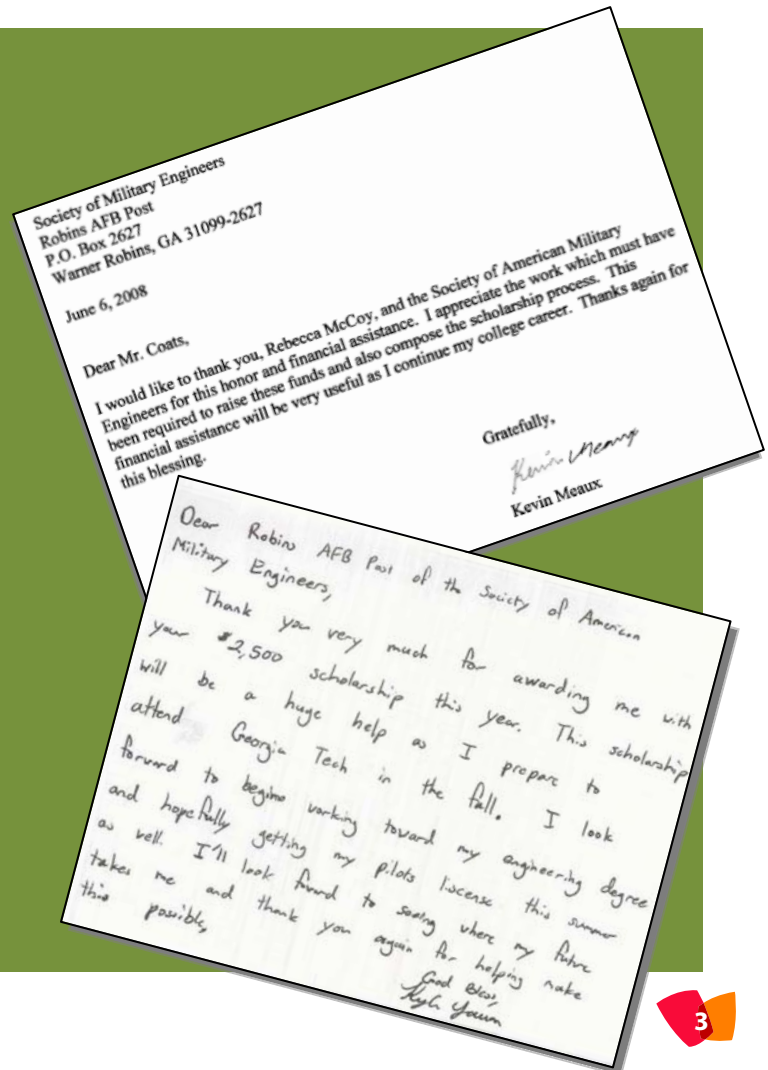 Society of Military Engineers
Robins AFB Post
P.O. Box 2627
Warner Robins, GA 31099-2627
June 6, 2008
Dear Mr. Coats,
I would like to thank you, Rebecca McCoy, and the Society of American Military
Engineers for this honor and financial assistance. I appreciate the work which must have
been required to raise these funds and also compose the scholarship process. This
financial assistance will be very useful as I continue my college career. Thanks again for
this blessing.
Gratefully,
Kevin Meaux
Kevin Meaux
Dear Robins AFB Post of the Society of American
Military Engineers,
Thank you very much for awarding me with
your $2,500 scholarship this year. This scholarship
will be a huge help as I prepare to
attend Georgia Tech in the fall. I look
forward to begine working toward my engineering degree
and hopefully getting my pilots liscense this summer
as well. I'll look forward to seeing where my future
takes me and thank you again for helping make
this possible,
God Bless,
Kyle
3